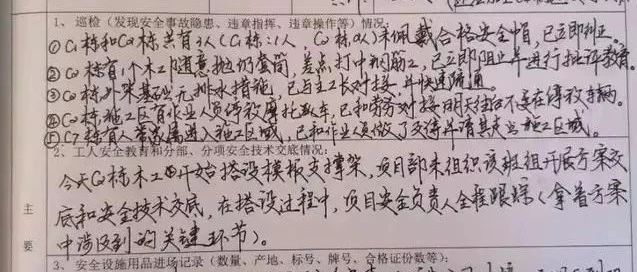 1、巡检(发现安全事故隐患、违章指挥、违章操作等)情况:
①C1栋和C2栋共有3人(C1栋:1人,C2栋2人)未佩戴合格安全帽,已立即纠正。
②C2栋有1个木工随意抛扔套筒,差点打中钢筋工,已立即阻止并进行批评教育。
③C2栋外架基础无排水措施,已与主工长对接,并快速疏通。
④C2栋施工区有作业人员停放摩托车,已和劳务对接明天往后不再停放车辆。
⑤C7栋有人带家属进入施工区域,已和作业人员做了交待并请其走出施工区域。
2、工人安全教育和分部、分项安全技术交底情况:
今天C2栋木工开始搭设模板支撑架,项目部来组织该班组开展方案交
底和安全技术交底,在搭设过程中,项目安全负责人全程跟踪(拿着方案
中涉及到的关键环节)。
主
要
3、安全设施用品进场记录(数量、产地、标号、牌号、合格证份数等):